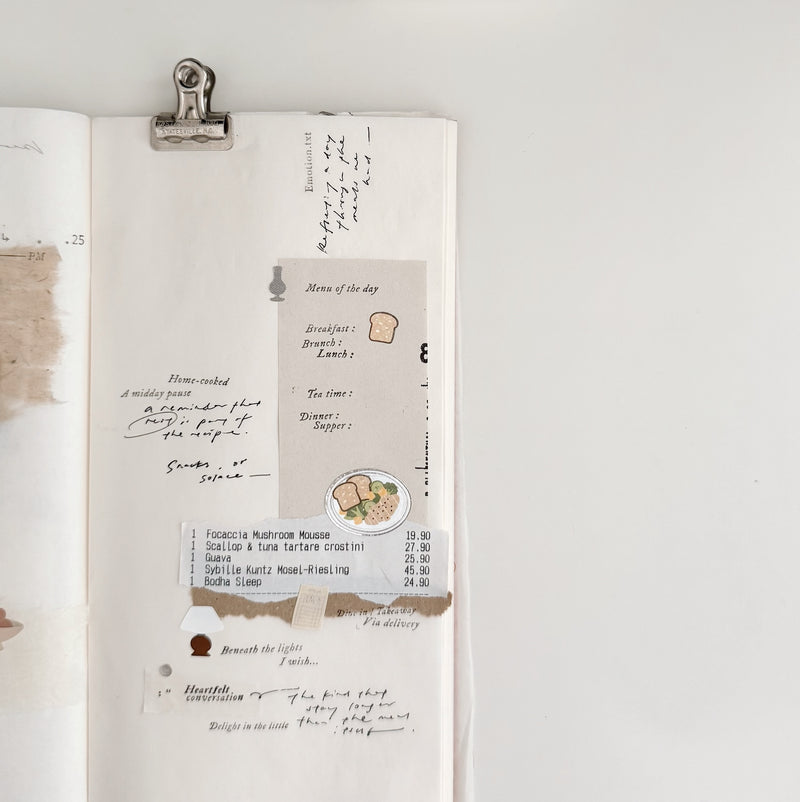 .25
PM
Emotion.txt
Refreshing a day
through the
meals we
had —
Menu of the day
Breakfast :
Brunch :
Lunch :
Tea time :
Dinner :
Supper :
8
Home-cooked
A midday pause
a reminder that
rest is part of
the recipe.
Snacks, or
solace —
1 Focaccia Mushroom Mousse 19.90
1 Scallop & tuna tartare crostini 27.90
1 Guava 25.90
1 Sybille Kuntz Mosel-Riesling 45.90
1 Bodha Sleep 24.90
Dine in / Takeaway
Via delivery
Beneath the lights
I wish...
Heartfelt
conversation
the kind that
stay longer
than the meal
itself.
Delight in the little